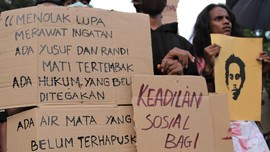 "MENOLAK LUPA
MERAWAT INGATAN
ADA YUSUF DAN RANDI
MATI TERTEMBAK
ADA HUKUM, YANG BELU
DITEGAKAN"
ADA AIR MATA YANG
BELUM TERHAPUSK
KEADILAN
SOSIAL
BAGI